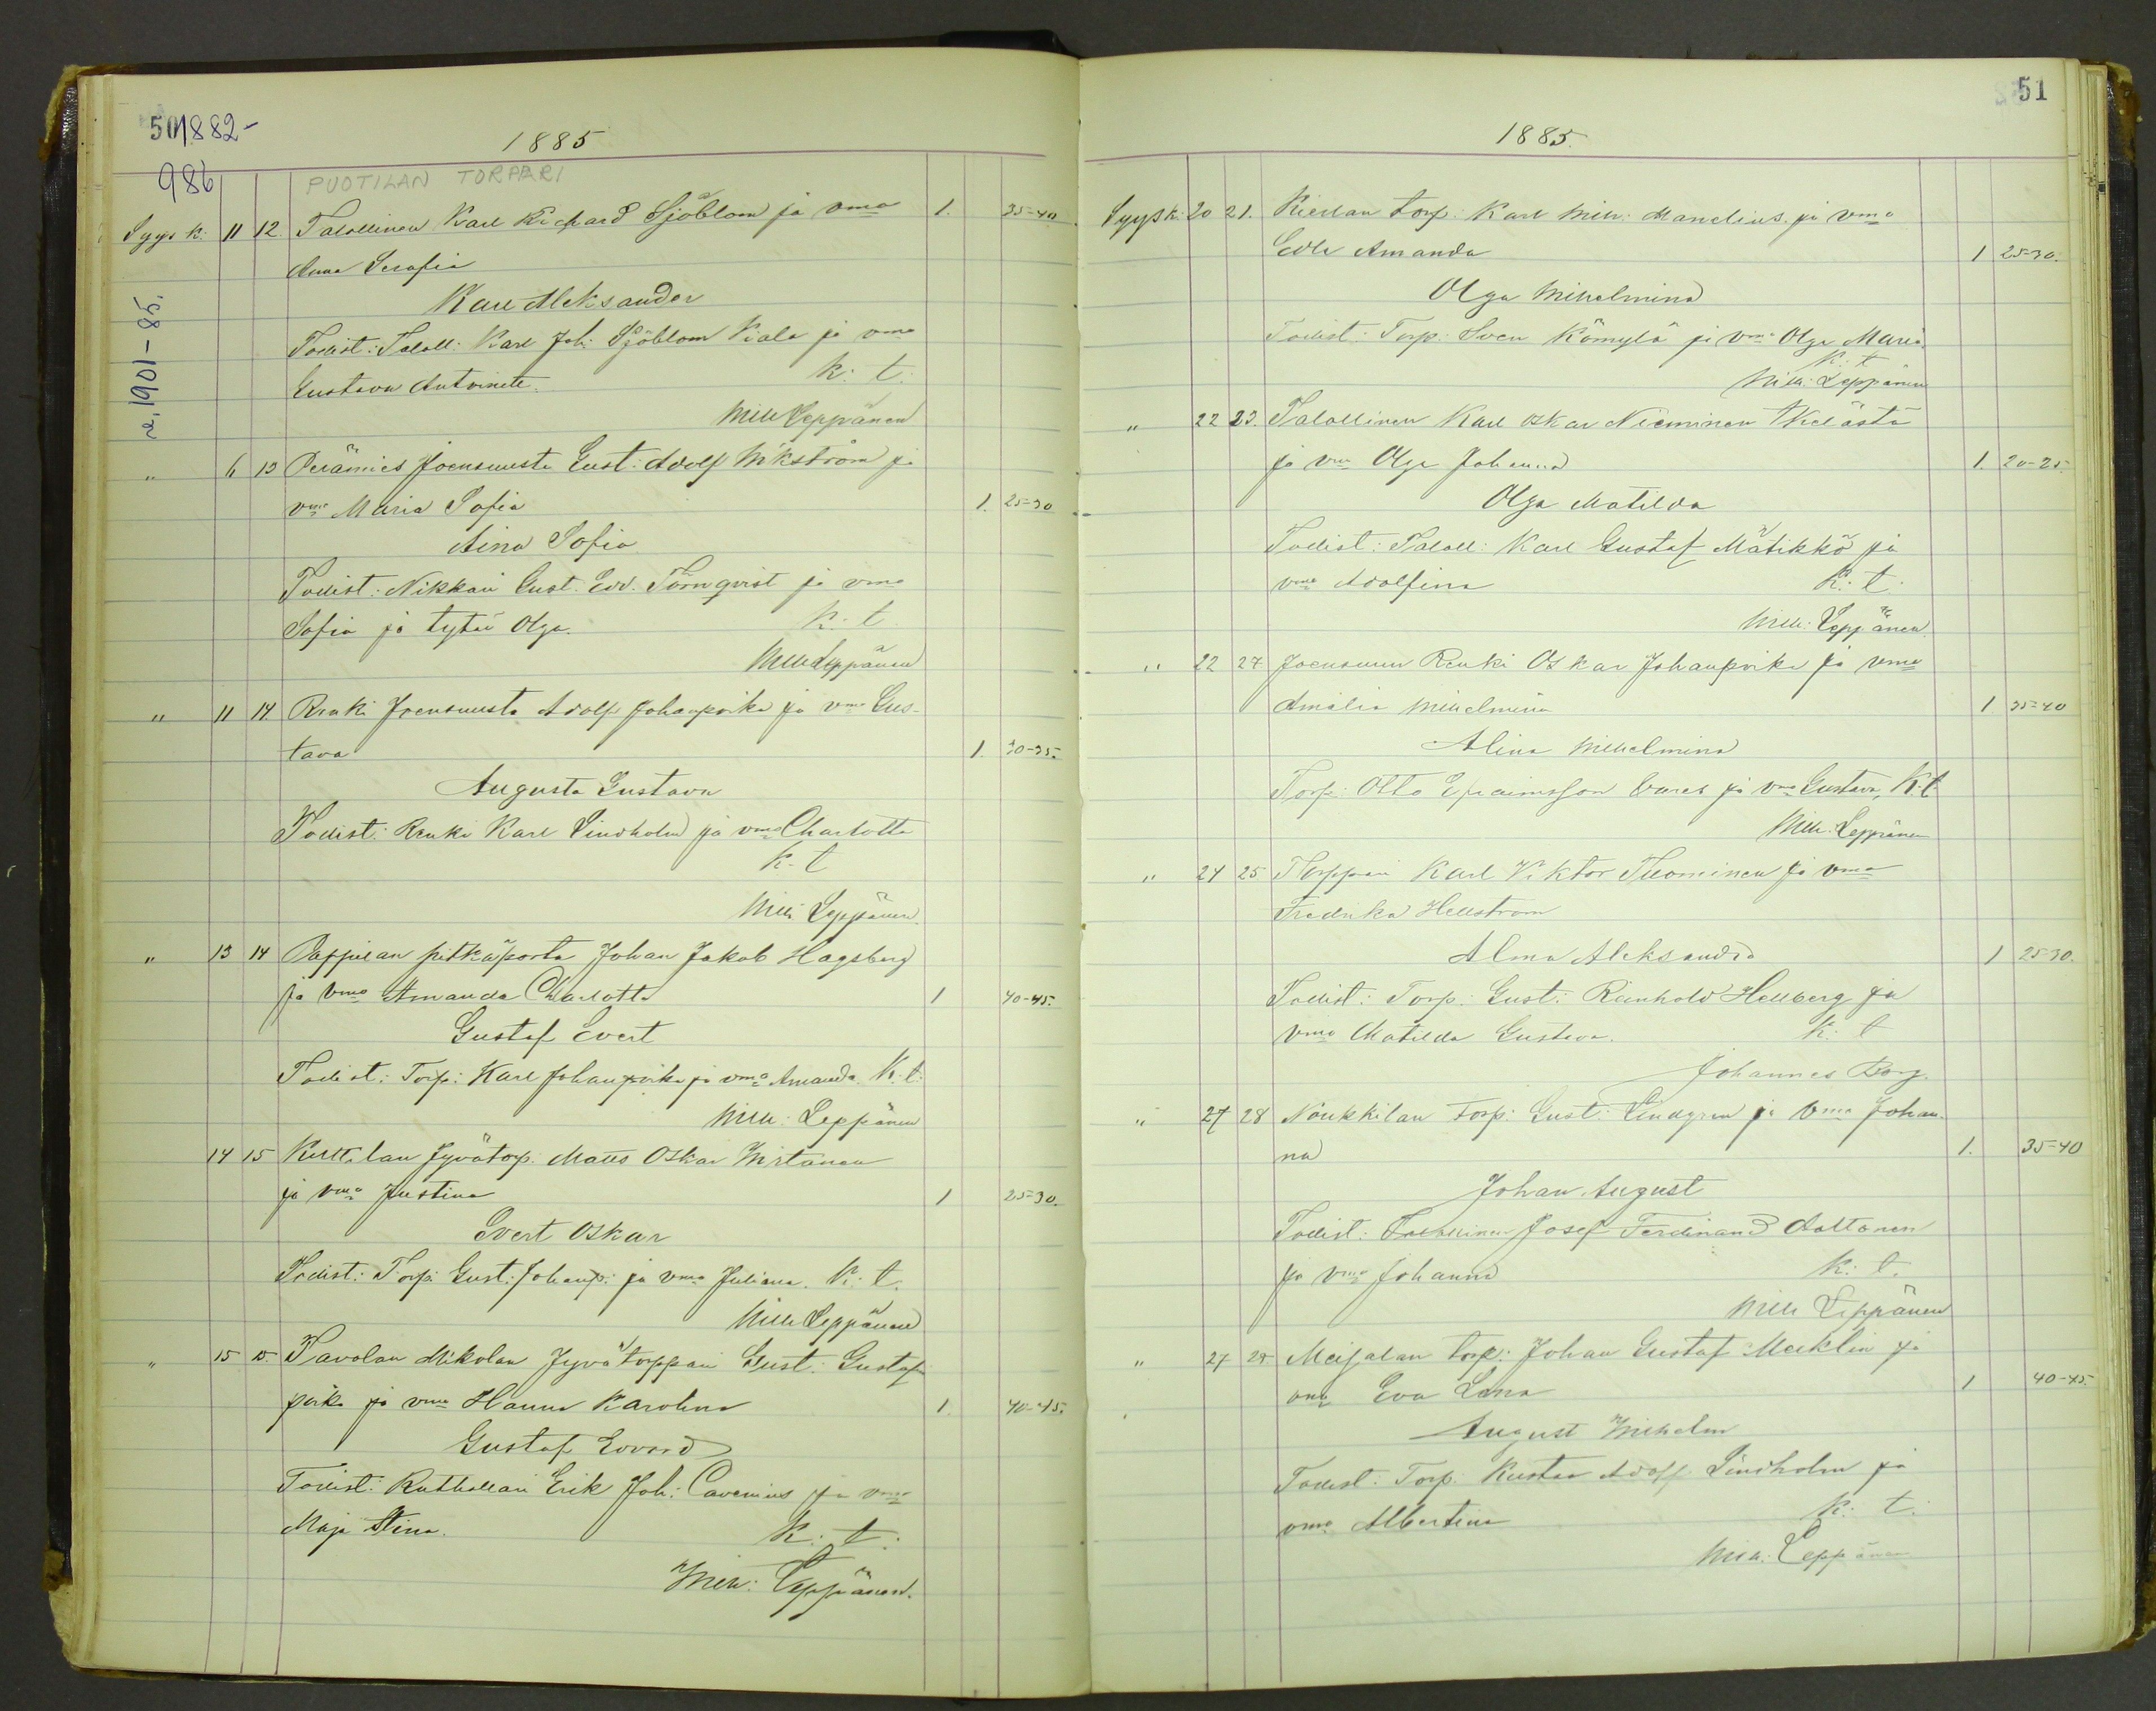 50 1882-
1885
986
a. 1901-85.
PUOTILAN TORPPARI
Syysk: 11 12. Talollinen Karl Richard Sjöblom ja vmo 1. 35-40
Anna Serafia
Karl Aleksander
Todist: Taloll: Karl Joh: Sjöblom Kiala ja vmo
Gustava Antoinete. K: t.
Wilh Leppänen
" 6 13 Perämies Joensuusta Gust: Adolf Wikström ja
vmo Maria Sofia 1. 25-30
Aina Sofia
Todist: Nikkari Gust. Edv. Törnqvist ja vmo
Sofia ja tytär Olga. K: t
Wilh Leppänen
" 11 14. Renki Joensuusta Adolf Johanpoika ja vmo Gus-
tava 1. 30-35.
Augusta Gustava
Todist: Renki Karl Lindholm ja vmo Charlotta
K. t
Wilh: Leppänen
" 13 14 Pappilan Johan Jakob Hagsberg
ja vmo Amanda Charlotta 1 40-45.
Gustaf Evert
Todist: Torp: Karl Johanpoika ja vmo Amanda. K: t:
Wilh: Leppänen
14 15 Kulttilan Jyvätorp: Matts Oskar Wirtanen
ja vmo Justina 1 25-30.
Evert Oskar
Todist: Torp: Gust: Johanp: ja vmo Juliana. K: t.
Wilh Leppänen
" 15 15. Tavolan Mikolan Jyvätorppari Gust: Gustaf
poika ja vmo Hanna Karolina 1. 40-45.
Gustaf Edvard
Todist: Ruthollari Erik Joh: Cavenius ja vmo
Maja Stina. K: t.
Wilh: Leppänen.
51
1885.
Syysk: 20 21. Kierlan torp: Karl Wilh: Manelius ja vmo
Edla Amanda 1 25-30.
Olga Wilhelmina
Todist: Torp: Sven Kömylä ja vmo Olga Maria.
K: t
Wilh: Leppänen
" 22 23. Talollinen Karl Oskar Nieminen
ja vmo Olga Johanna 1. 20-25.
Olga Matilda
Todist: Taloll: Karl Gustaf Mätikkö ja
vmo Adolfina K: t.
Wilh: Leppänen.
" 22 27 Joensuun Renki Oskar Johanpoika ja vmo
Amalia Wilhelmina 1 35-40
Alina Wilhelmina
Torp: Otto Efraimsson ja vmo Gustava, K: t
Wilh: Leppänen
" 24 25 Torppari Karl Viktor Tuominen ja vmo
Fredrika Hellström
Alma Aleksandra 1 25-30.
Todist: Torp: Gust: Reinhold Hellberg ja
vmo Matilda Gustava. K: t
Johannes Borg.
" 27 28 Noukkilan torp: Gust: Lindgren ja vmo Johan-
na 1. 35-40
Johan August
Todist: Talollinen Josef Ferdinand Aaltonen
ja vmo Johanna K: t.
Wilh Leppänen
" 27 29 Meijalan torp: Johan Gustaf Mecklin ja
vmo Eva Lena 1 40-45.
August Wilhelm
Todist: Torp: Kustaa Adolf Lindholm ja
vmo Albertina K: t:
Wilh: Leppänen